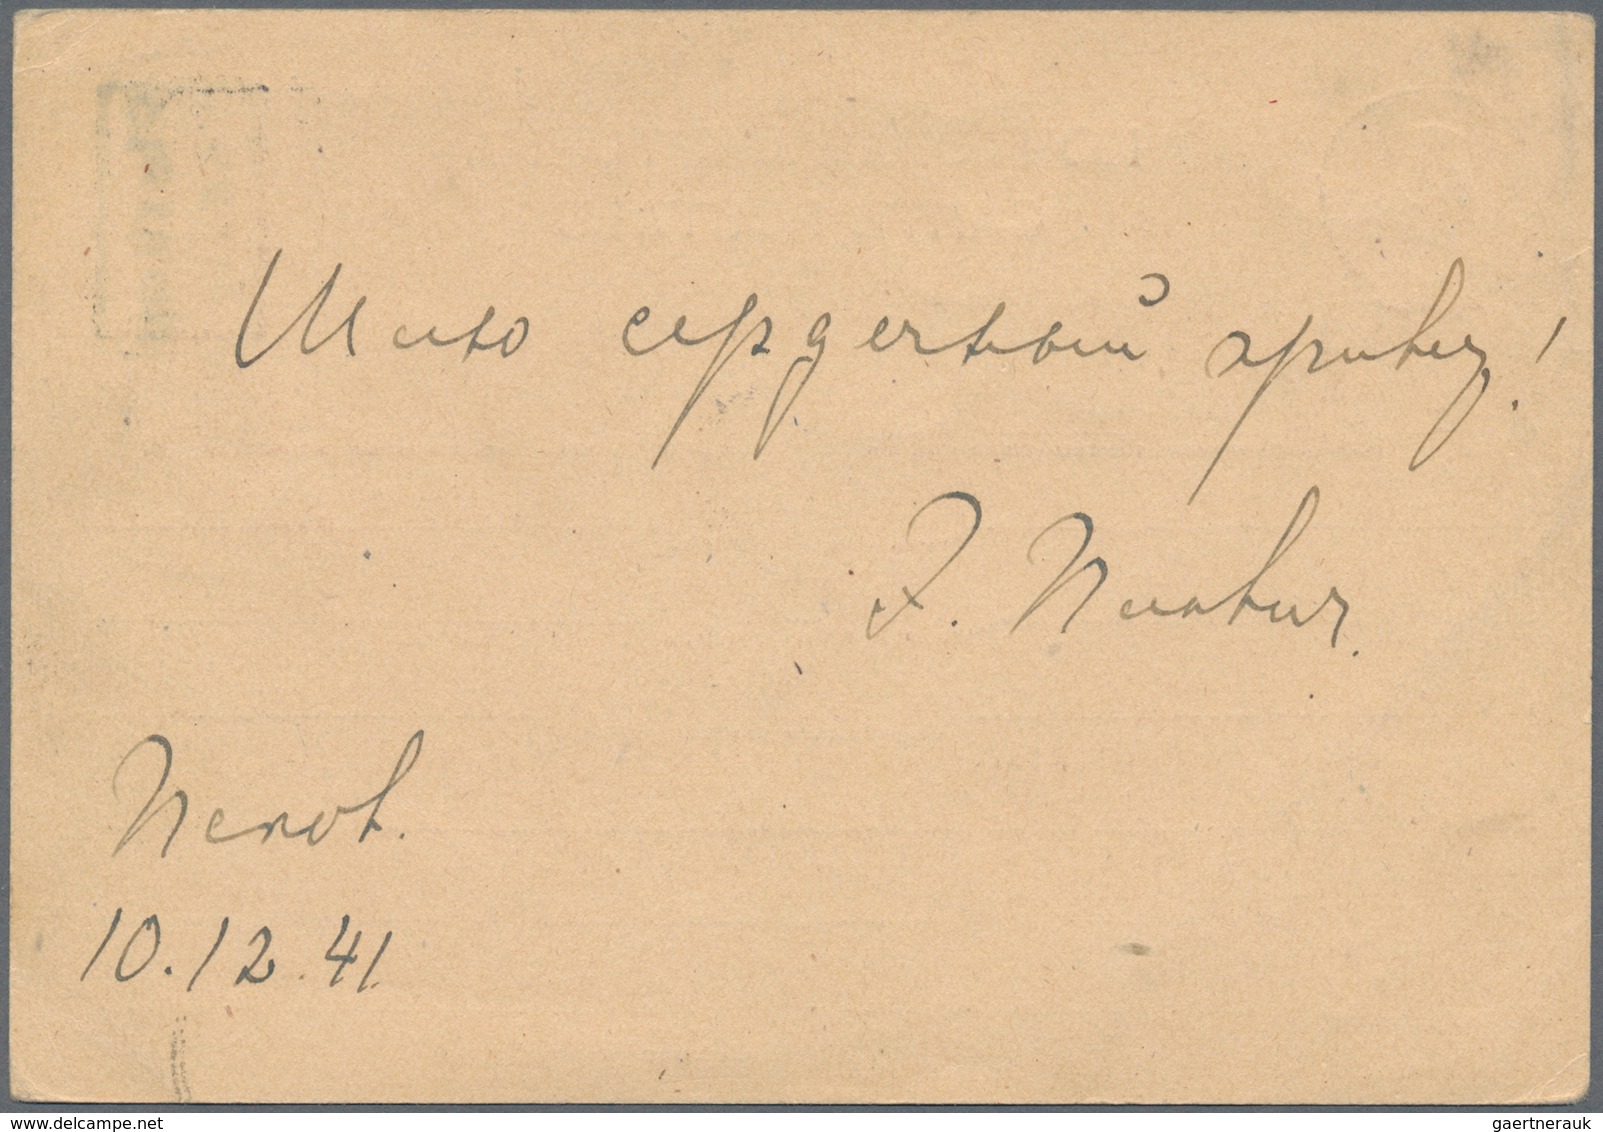 Шлю сердечный привет!
Псков.
10.12.41.
www.delcampe.net
gaertnerauk